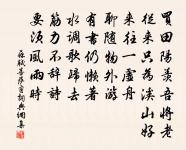 買田陽羨吾將老
從來只為溪山好
來往一虛舟
聊隨物外游
有書仍懶著
水調歌歸去
筋力不辭詩
要須風雨時
蘇軾菩薩蠻詞典網集